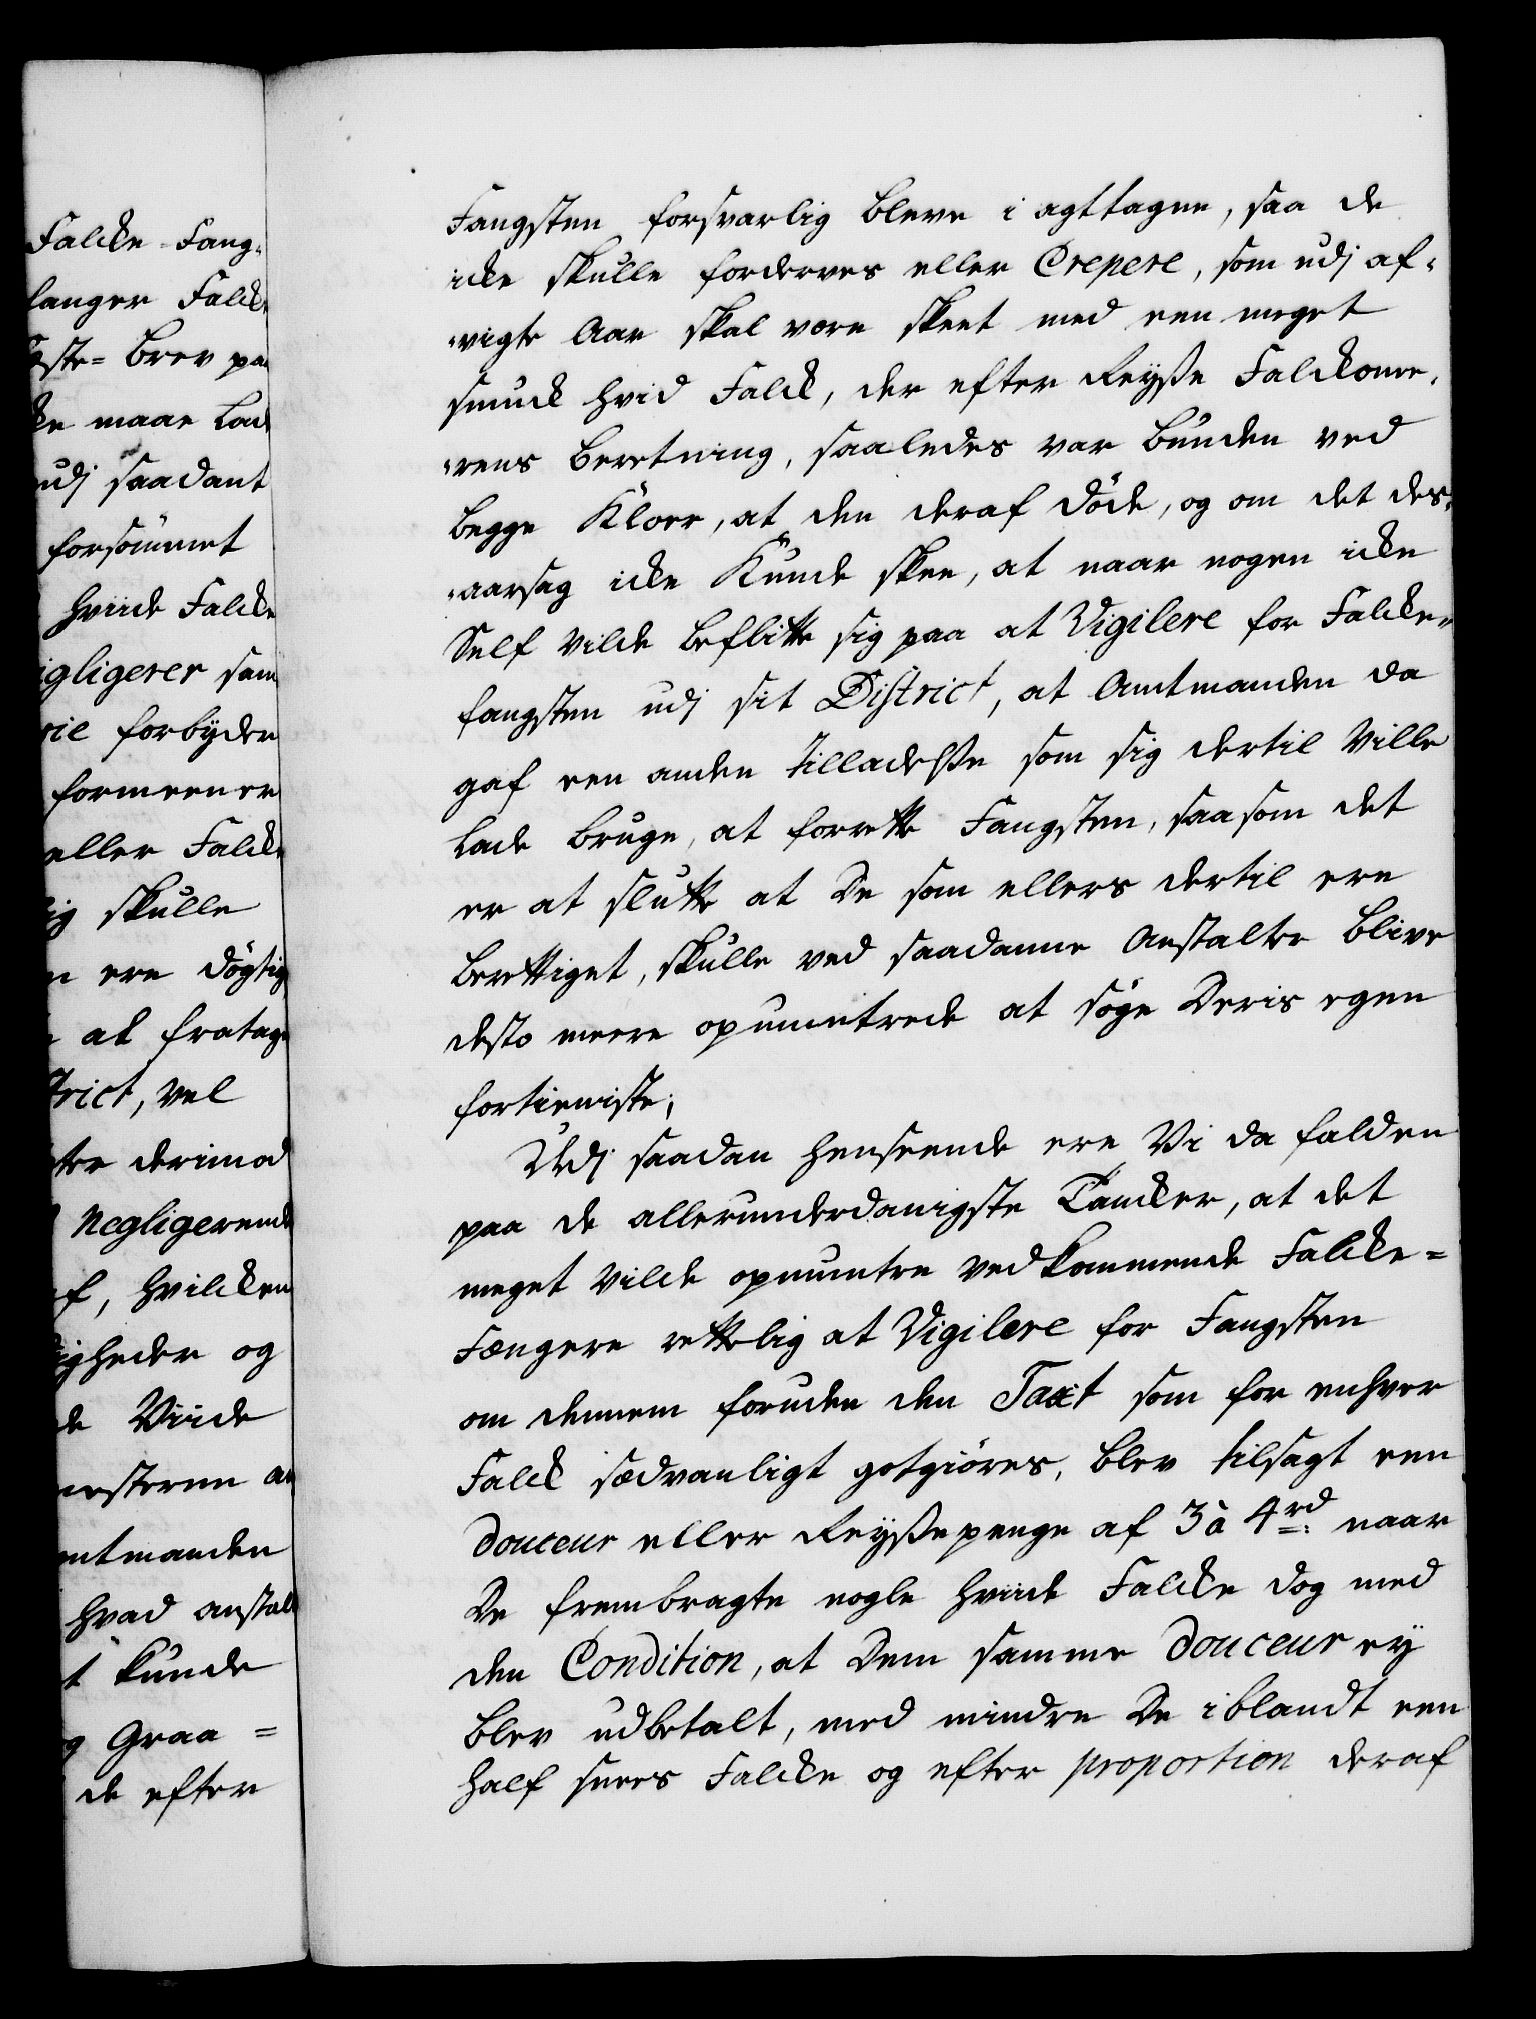 Falcke-Fang-
langer Falcke
ste= Brev paa
ke maae Lade
udj saadant
forsømmet
hviide Falcke
igligerer sam
rie forbyder
formeener
eller Falcke
ig skulle
n ere dögtig
at fratage
trict, vel
ter derimod
Negligerende
f, hvilcken
igheder og
de Viide
mesteren an
mtmanden
hvad anstalt
t kunde
g Graa=
de efter
Fangsten forsvarlig bleve i agttagne, saa de
icke skulle forderves eller Crepere, som udj af-
-vigte Aar skal være skeet med een meget
smuck hvid Falck, der efter Reyße Falckone-
-rens Beretning, saaledes var bunden ved
begge Klöer, at den deraf döde, og om det des-
-aarsag icke Kunde skee, at naar nogen icke
Self vilde beflitte sig paa at Vigilere for Falcke-
fangsten udj sit District, at Amtmanden da
gaf een anden tilladelße som sig dertil ville
lade bruge, at forrette Fangsten, saasom det
er at slutte at De som ellers dertil ere
berettiget, skulle ved saadanne Anstalter blive
desto meere opmuntrede at söge Deris egen
fortieniste;
Udj saadan henseende ere Vi da falden
paa de allerunderdanigste Tancker, at det
meget vilde opmuntre vedkommende Falcke=
Fængere rettelig at Vigilere for Fangsten
om dennem foruden den Taxt som for enhver
Falck sædvanligt gotgiöres, blev tilsagt een
douceur eller Reyßepenge af 3 à 4 rd: naar
De frembragte nogle hviide Falcke dog med
den Condition, at Dem samme douceur ey
blev udbetalt, med mindre De iblandt een
half snees Falcke og efter proportion deraf